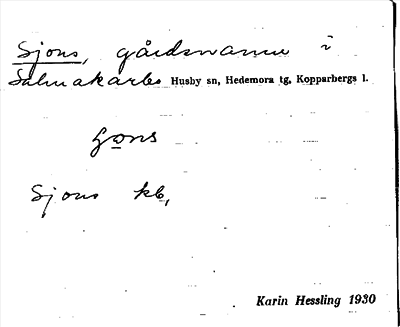 Sjons, gårdsnamn i
Salmakarbo Husby sn, Hedemora tg, Kopparbergs l.
Sjons kb,
Karin Hessling 1930